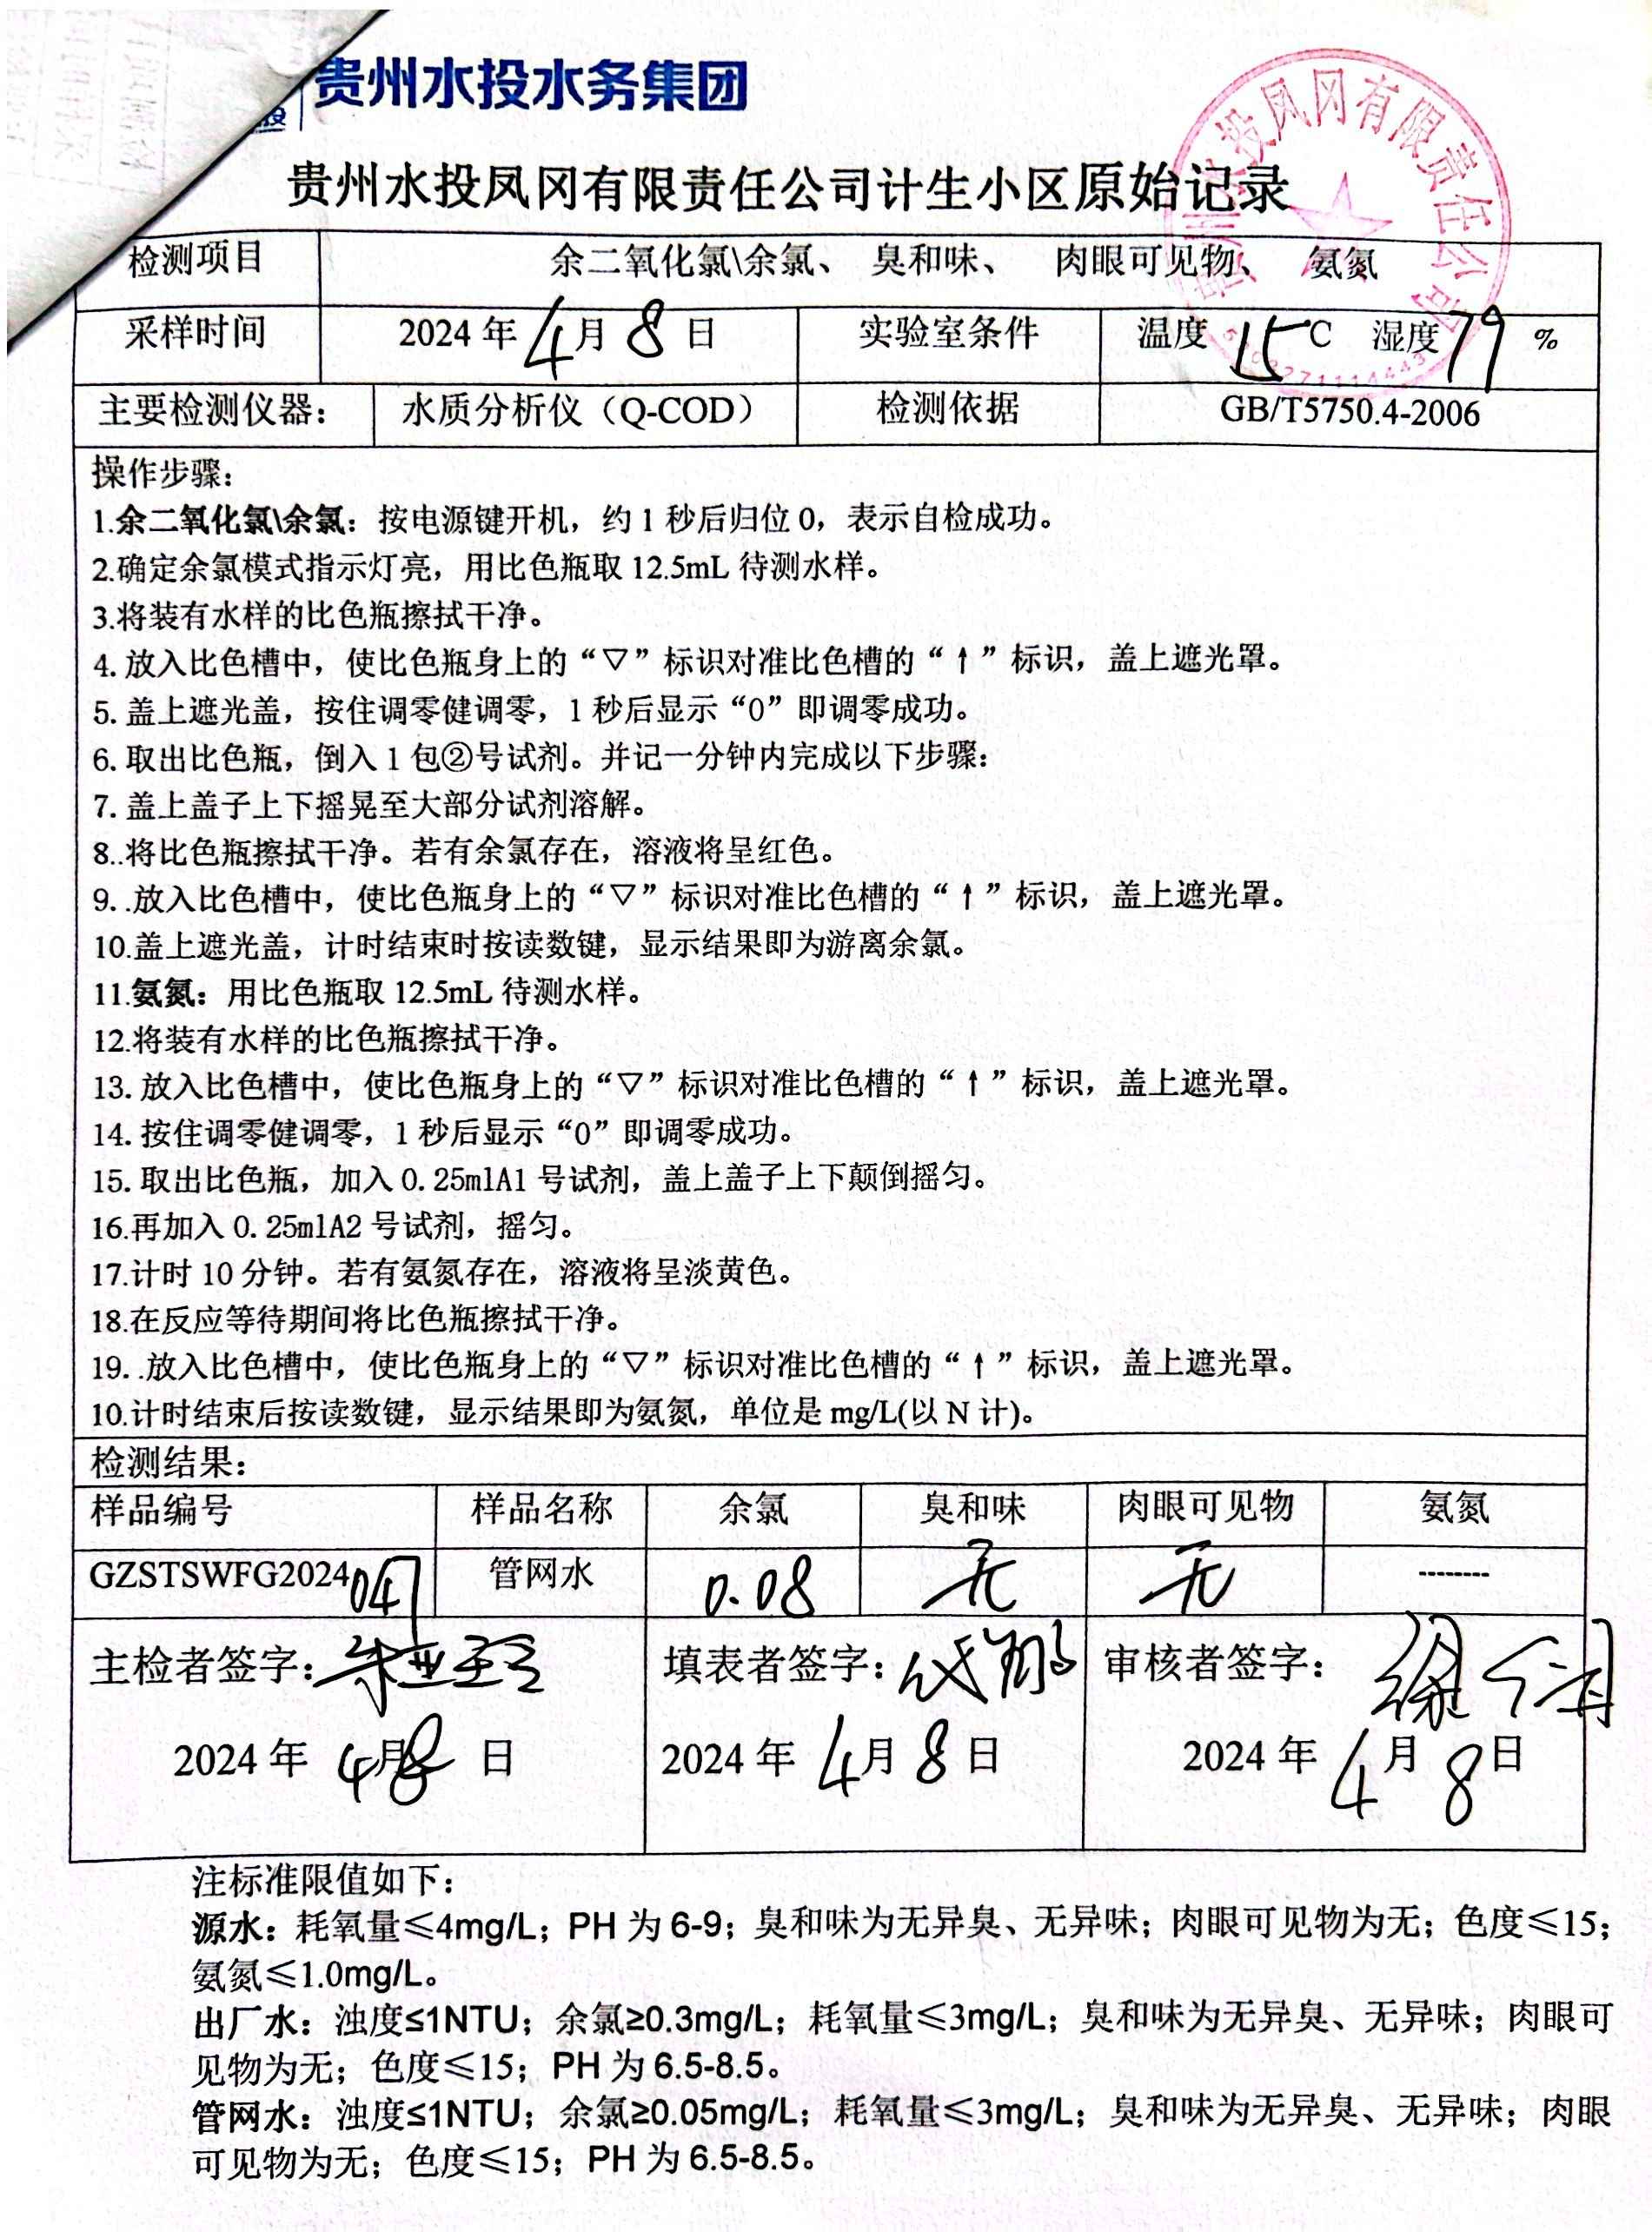 贵州水投水务集团
投
贵州水投凤冈有限责任公司
贵州水投凤冈有限责任公司计生小区原始记录
检测项目 余二氧化氯\余氯、 臭和味、 肉眼可见物、 氨氮
采样时间 2024年4月8日 实验室条件 温度 15℃ 湿度79 %
主要检测仪器： 水质分析仪（Q-COD） 检测依据 GB/T5750.4-2006
操作步骤：
1.余二氧化氯\余氯：按电源键开机，约1秒后归位0，表示自检成功。
2.确定余氯模式指示灯亮，用比色瓶取12.5mL待测水样。
3.将装有水样的比色瓶擦拭干净。
4. 放入比色槽中，使比色瓶身上的“▽”标识对准比色槽的“↑”标识，盖上遮光罩。
5. 盖上遮光盖，按住调零健调零，1秒后显示“0”即调零成功。
6. 取出比色瓶，倒入1包②号试剂。并记一分钟内完成以下步骤：
7. 盖上盖子上下摇晃至大部分试剂溶解。
8..将比色瓶擦拭干净。若有余氯存在，溶液将呈红色。
9. .放入比色槽中，使比色瓶身上的“▽”标识对准比色槽的“↑”标识，盖上遮光罩。
10.盖上遮光盖，计时结束时按读数键，显示结果即为游离余氯。
11.氨氮：用比色瓶取12.5mL待测水样。
12.将装有水样的比色瓶擦拭干净。
13. 放入比色槽中，使比色瓶身上的“▽”标识对准比色槽的“↑”标识，盖上遮光罩。
14. 按住调零健调零，1秒后显示“0”即调零成功。
15. 取出比色瓶，加入0.25mlA1号试剂，盖上盖子上下颠倒摇匀。
16.再加入0.25mlA2号试剂，摇匀。
17.计时10分钟。若有氨氮存在，溶液将呈淡黄色。
18.在反应等待期间将比色瓶擦拭干净。
19. .放入比色槽中，使比色瓶身上的“▽”标识对准比色槽的“↑”标识，盖上遮光罩。
10.计时结束后按读数键，显示结果即为氨氮，单位是mg/L(以N计)。
检测结果：
样品编号 样品名称 余氯 臭和味 肉眼可见物 氨氮
GZSTSWFG2024 管网水 0.08 无 无 --------
主检者签字： 填表者签字： 审核者签字：
2024年4月8日 2024年4月8日 2024年4月8日
注标准限值如下：
源水：耗氧量≤4mg/L；PH为6-9；臭和味为无异臭、无异味；肉眼可见物为无；色度≤15；
氨氮≤1.0mg/L。
出厂水：浊度≤1NTU；余氯≥0.3mg/L；耗氧量≤3mg/L；臭和味为无异臭、无异味；肉眼可
见物为无；色度≤15；PH为6.5-8.5。
管网水：浊度≤1NTU；余氯≥0.05mg/L；耗氧量≤3mg/L；臭和味为无异臭、无异味；肉眼
可见物为无；色度≤15；PH为6.5-8.5。